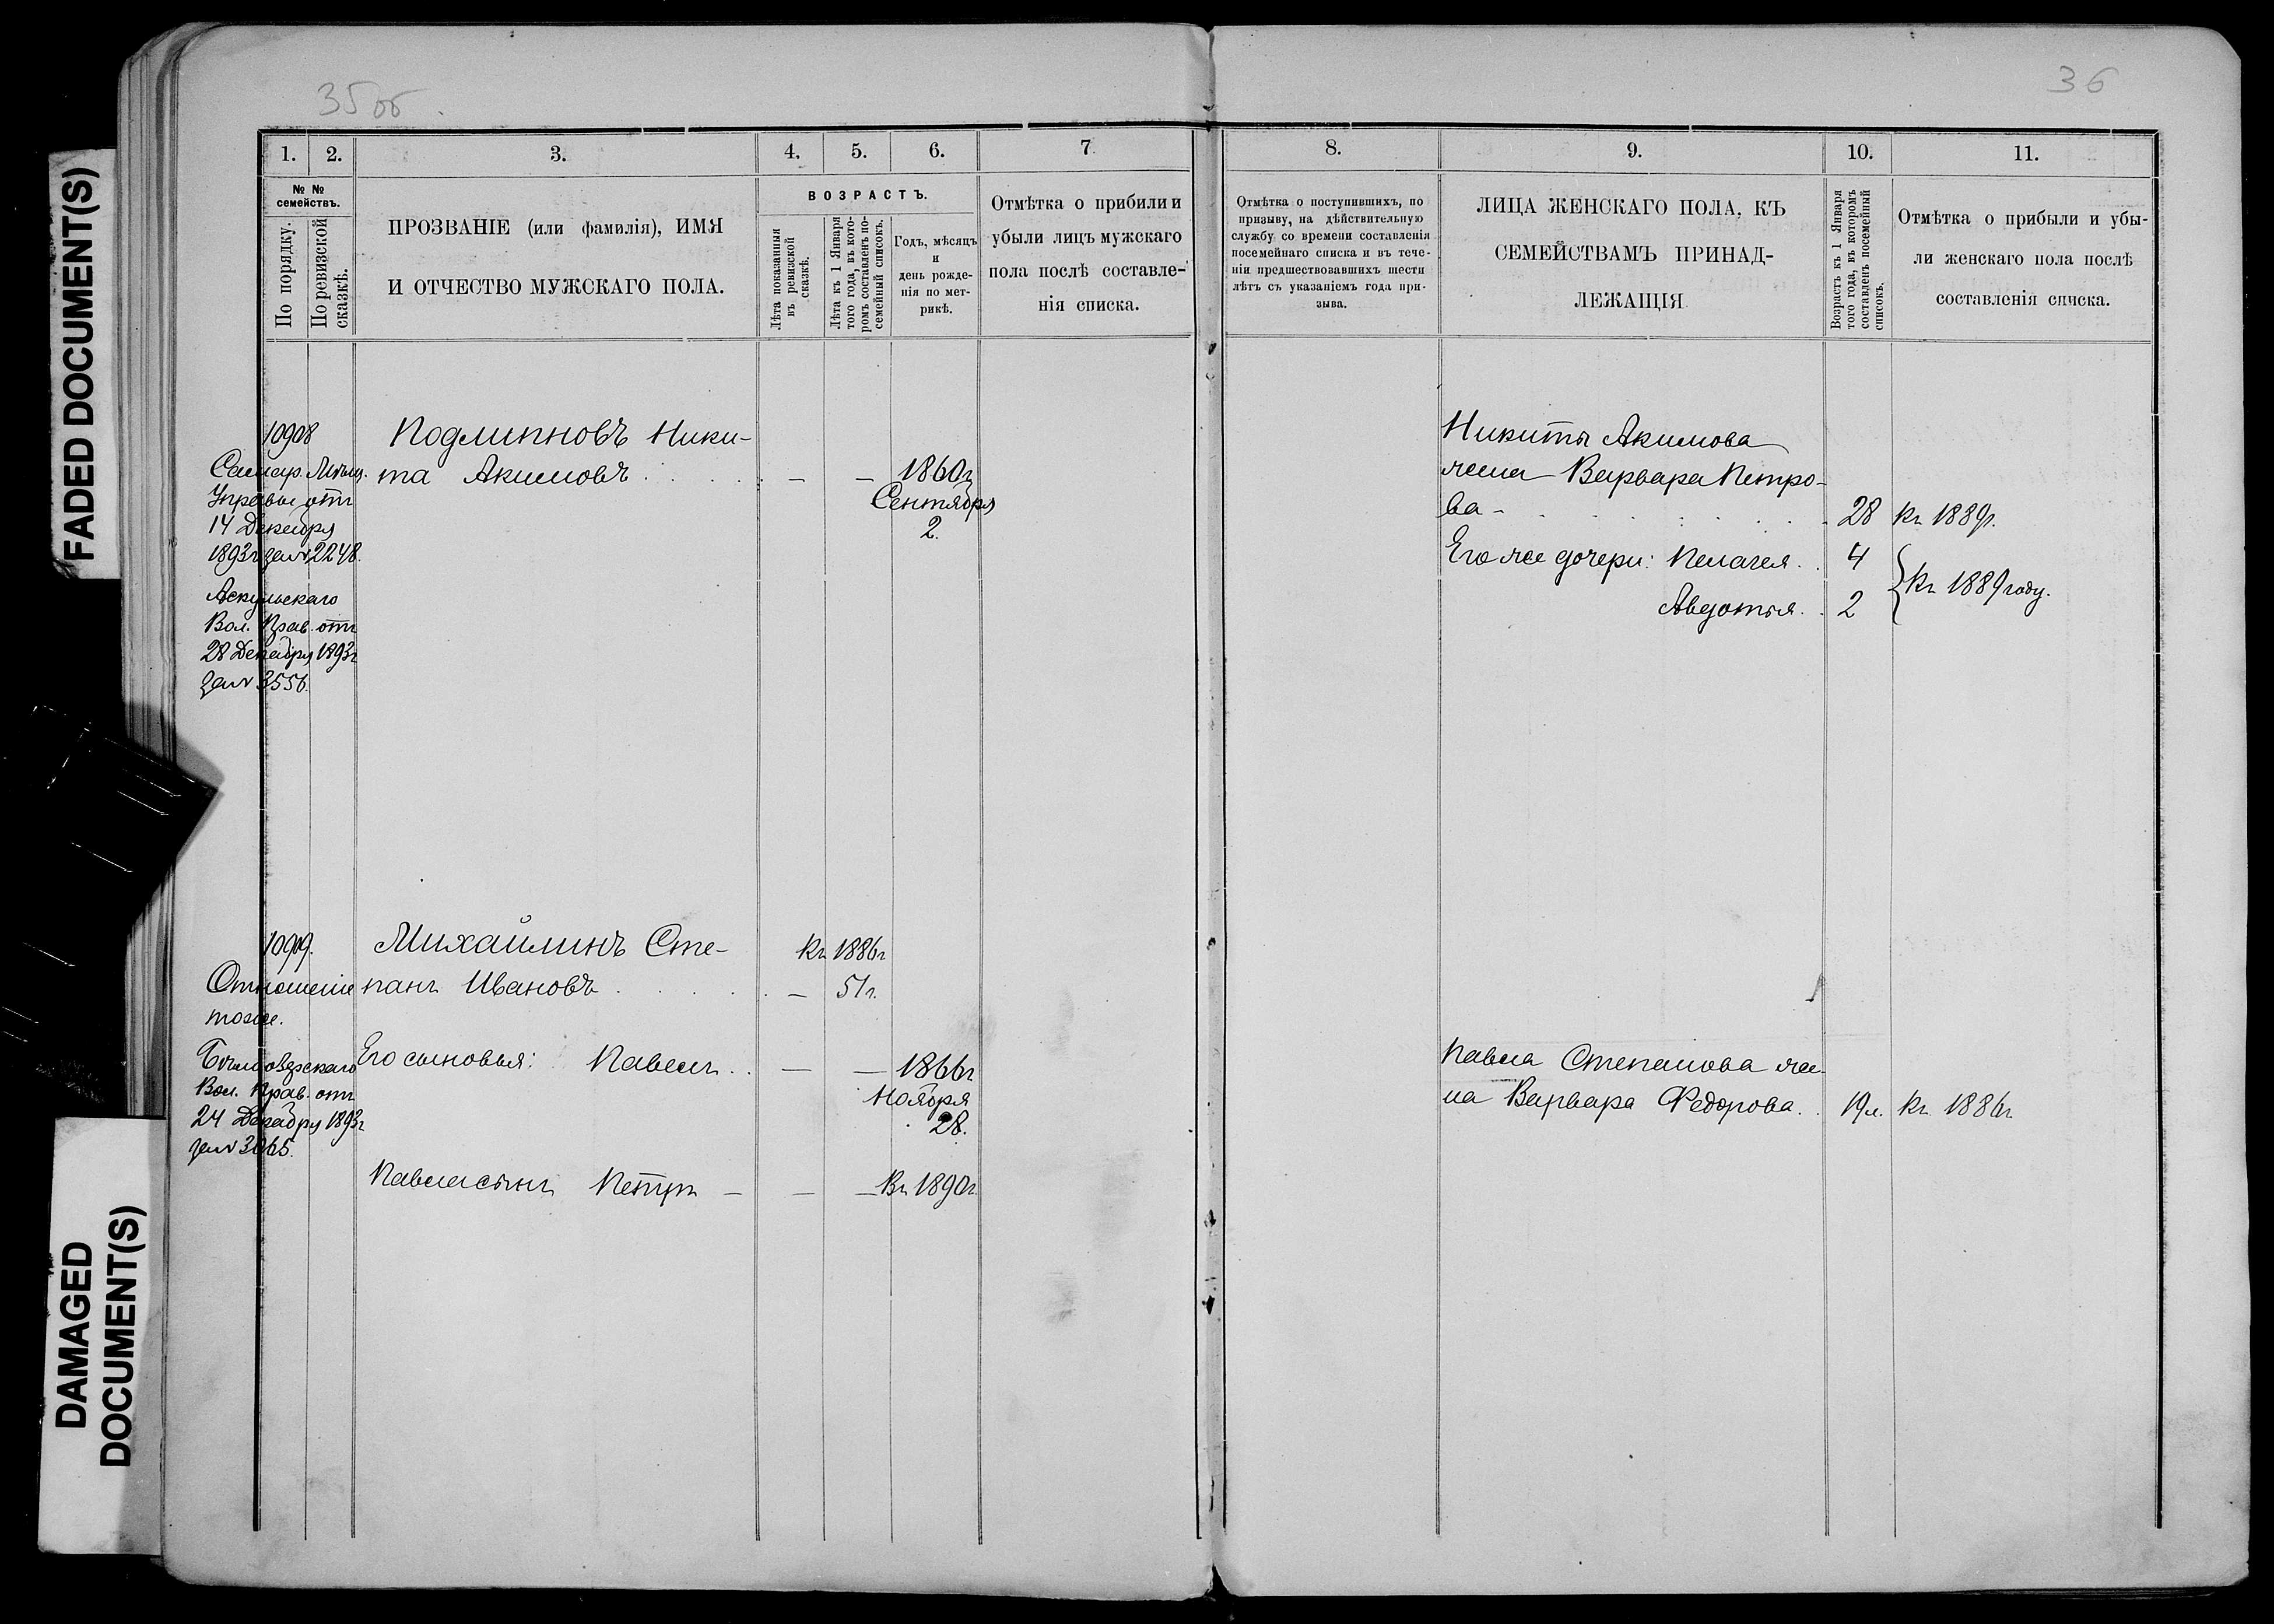 FADED DOCUMENT(S)
DAMAGED
DOCUMENT(S)
35об.
1. 2. 3. 4. 5. 6. 7
№ № семействъ.
По порядку.
По ревизской сказкѣ.
ПРОЗВАНІЕ (или фамилія), ИМЯ
И ОТЧЕСТВО МУЖСКАГО ПОЛА.
ВОЗРАСТЪ.
Лѣта показанныя
въ ревизской
сказкѣ.
Лѣта къ 1 Января
того года, въ кото-
ромъ составленъ по-
семейный списокъ.
Годъ, мѣсяцъ
и
день рожде-
нія по мет-
рикѣ.
Отмѣтка о прибыли и
убыли лицъ мужскаго
пола послѣ составле-
нія списка.
10908 Подлипновъ Ники-
Самар. Мѣщ. та Акимовъ . . . . . — — 1860г
Управы отъ Сентября
14 Декабря 2.
1893г за № 2248.
Аскульскаго
Вол. Прав. отъ
28 Декабря 1893г
за № 3556.
10909. Михайлинъ Сте- Къ 1886г
Отношеніе панъ Ивановъ . . . . . — 51г.
тоже.
Его сыновья: Павелъ . . — — 1866г
Вол. Прав. отъ Ноября
24 Декабря 1893г 28.
за № 3065.
Павла сынъ Петръ — — — Въ 1890г.
36
8. 9. 10. 11.
Отмѣтка о поступившихъ, по
призыву, на дѣйствительную
службу со времени составленія
посемейнаго списка и въ тече-
ніи предшествовавшихъ шести
лѣтъ съ указаніемъ года при-
зыва.
ЛИЦА ЖЕНСКАГО ПОЛА, КЪ
СЕМЕЙСТВАМЪ ПРИНАД-
ЛЕЖАЩІЯ
Возрастъ къ 1 Января
того года, въ которомъ
составленъ посемейный
списокъ.
Отмѣтка о прибыли и убы-
ли женскаго пола послѣ
составленія списка.
Никиты Акимова
жена Варвара Петро-
ва - . . . . . . 28 Къ 1889г.
Его же дочери: Пелагея . . 4
Авдотья . . 2 } Къ 1889 году.
Павла Степанова же-
на Варвара Федорова . . 19л. Къ 1886г